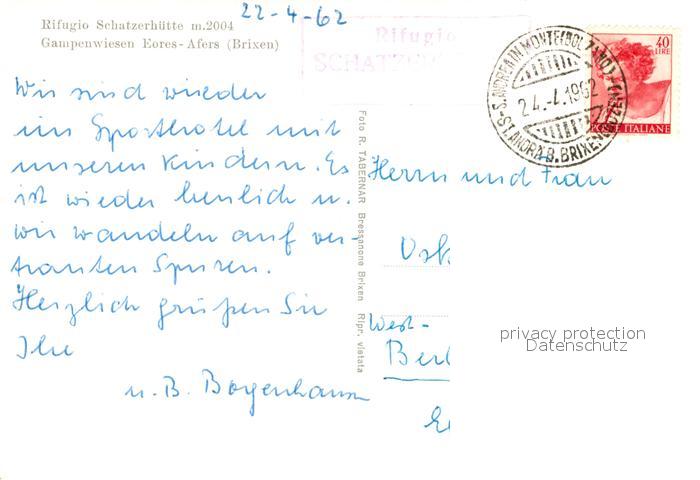 22-4-62
Rifugio Schatzerhütte m.2004
Gampenwiesen Eores-Afers (Brixen)
Rifugio
SCHATZER
S. ANDREA IN MONTE (BOLZANO)
24.-4.1962
ST. ANDRÄ B. BRIXEN (BOZEN)
40
LIRE
POSTE ITALIANE
Wir sind wieder
im Sporthotel mit
unseren Kindern. Es
ist wieder herrlich u.
wir wandeln auf ver-
trauten Spuren.
Herzlich grüßen Sie
Ihre
u. B. Borgenhausen
Foto R. TABERNAR Bressanone Brixen Ripr. vietata
Herrn und Frau
West-
Berl
privacy protection
Datenschutz